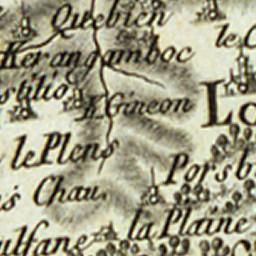 Quebien
Kerangamboc
le C
stilio
K. Gineon
Lo
le Plens
Porsb
s Chau.
la Plaine
ulfane